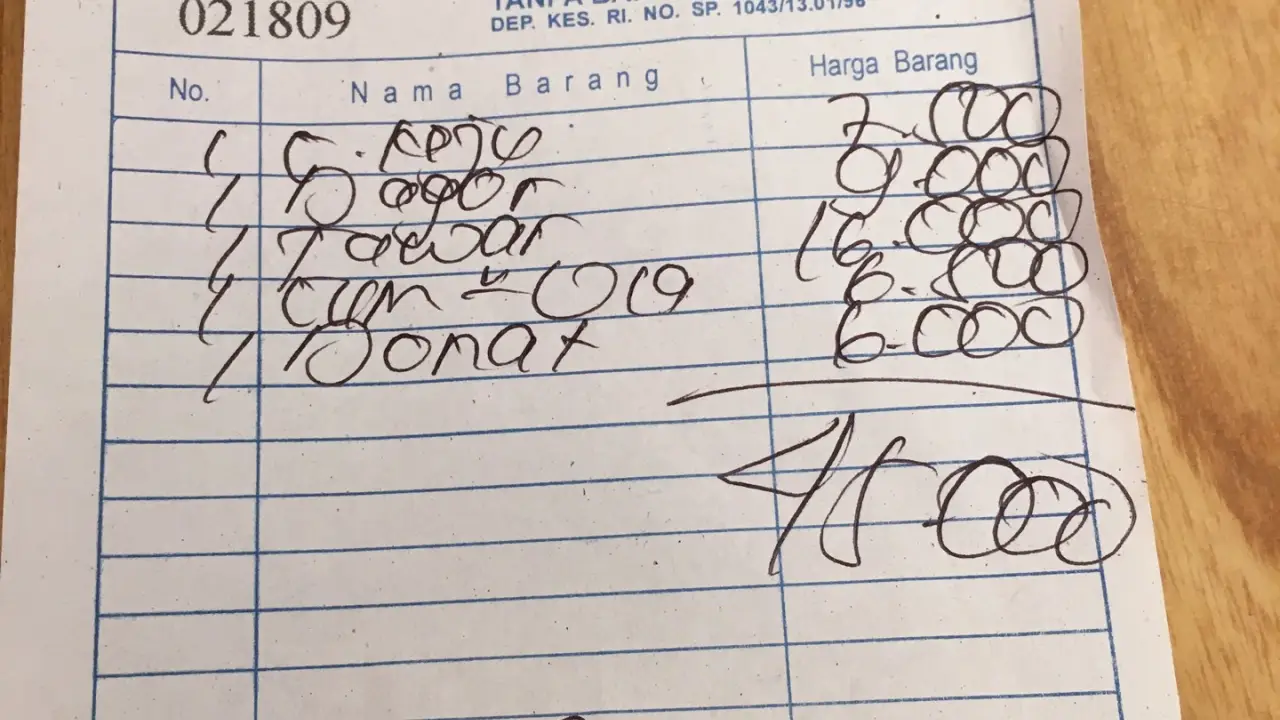 021809
DEP. KES. RI. NO. SP. 1043/13.01/96
No. Nama Barang Harga Barang
1 C. Keju 7.500
1 9.000
1 Tawar 16.000
1 6.500
1 Donat 6.000
45.000